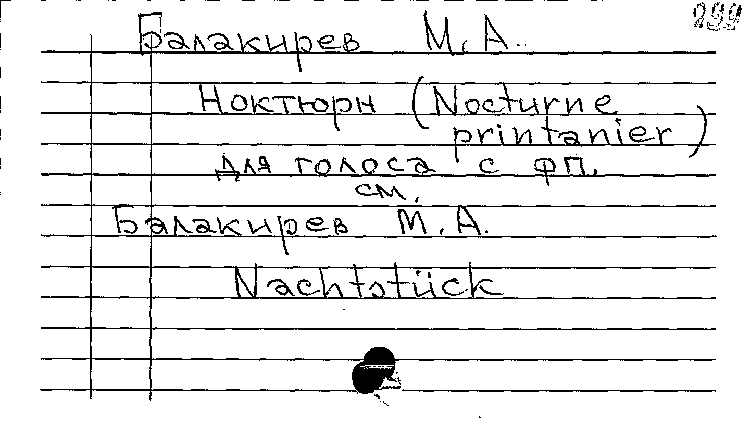 Балакирев М.А.
Ноктюрн (Nocturne
printanier)
для голоса с фп.
см.
Балакирев М.А.
Nachtstück